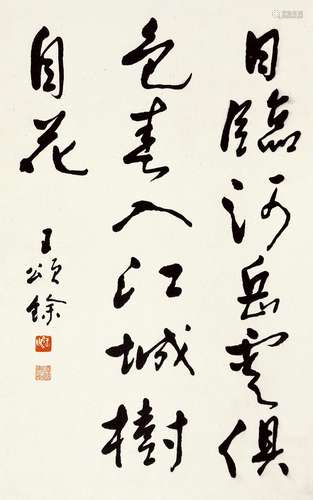 日臨河岳雲俱
色春入江城樹
自花
王頌餘